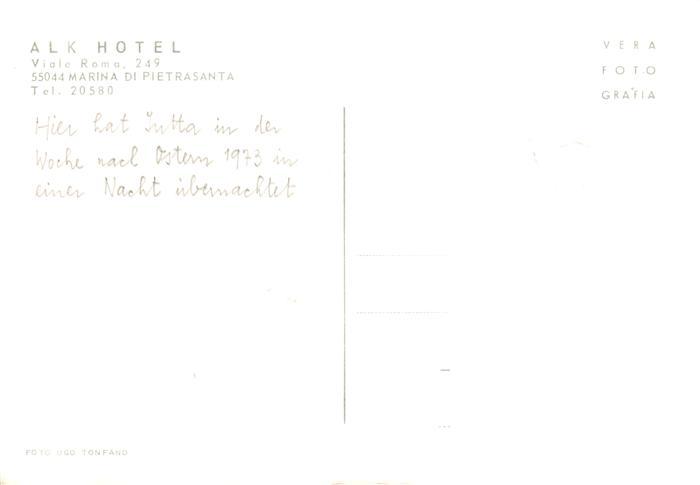 ALK HOTEL
Viale Roma, 249
55044 MARINA DI PIETRASANTA
Tel. 20580
Hier hat Jutta in der
Woche nach Ostern 1973 in
einer Nacht übernachtet
VERA
FOTO
GRAFIA
FOTO UGO TONFANO